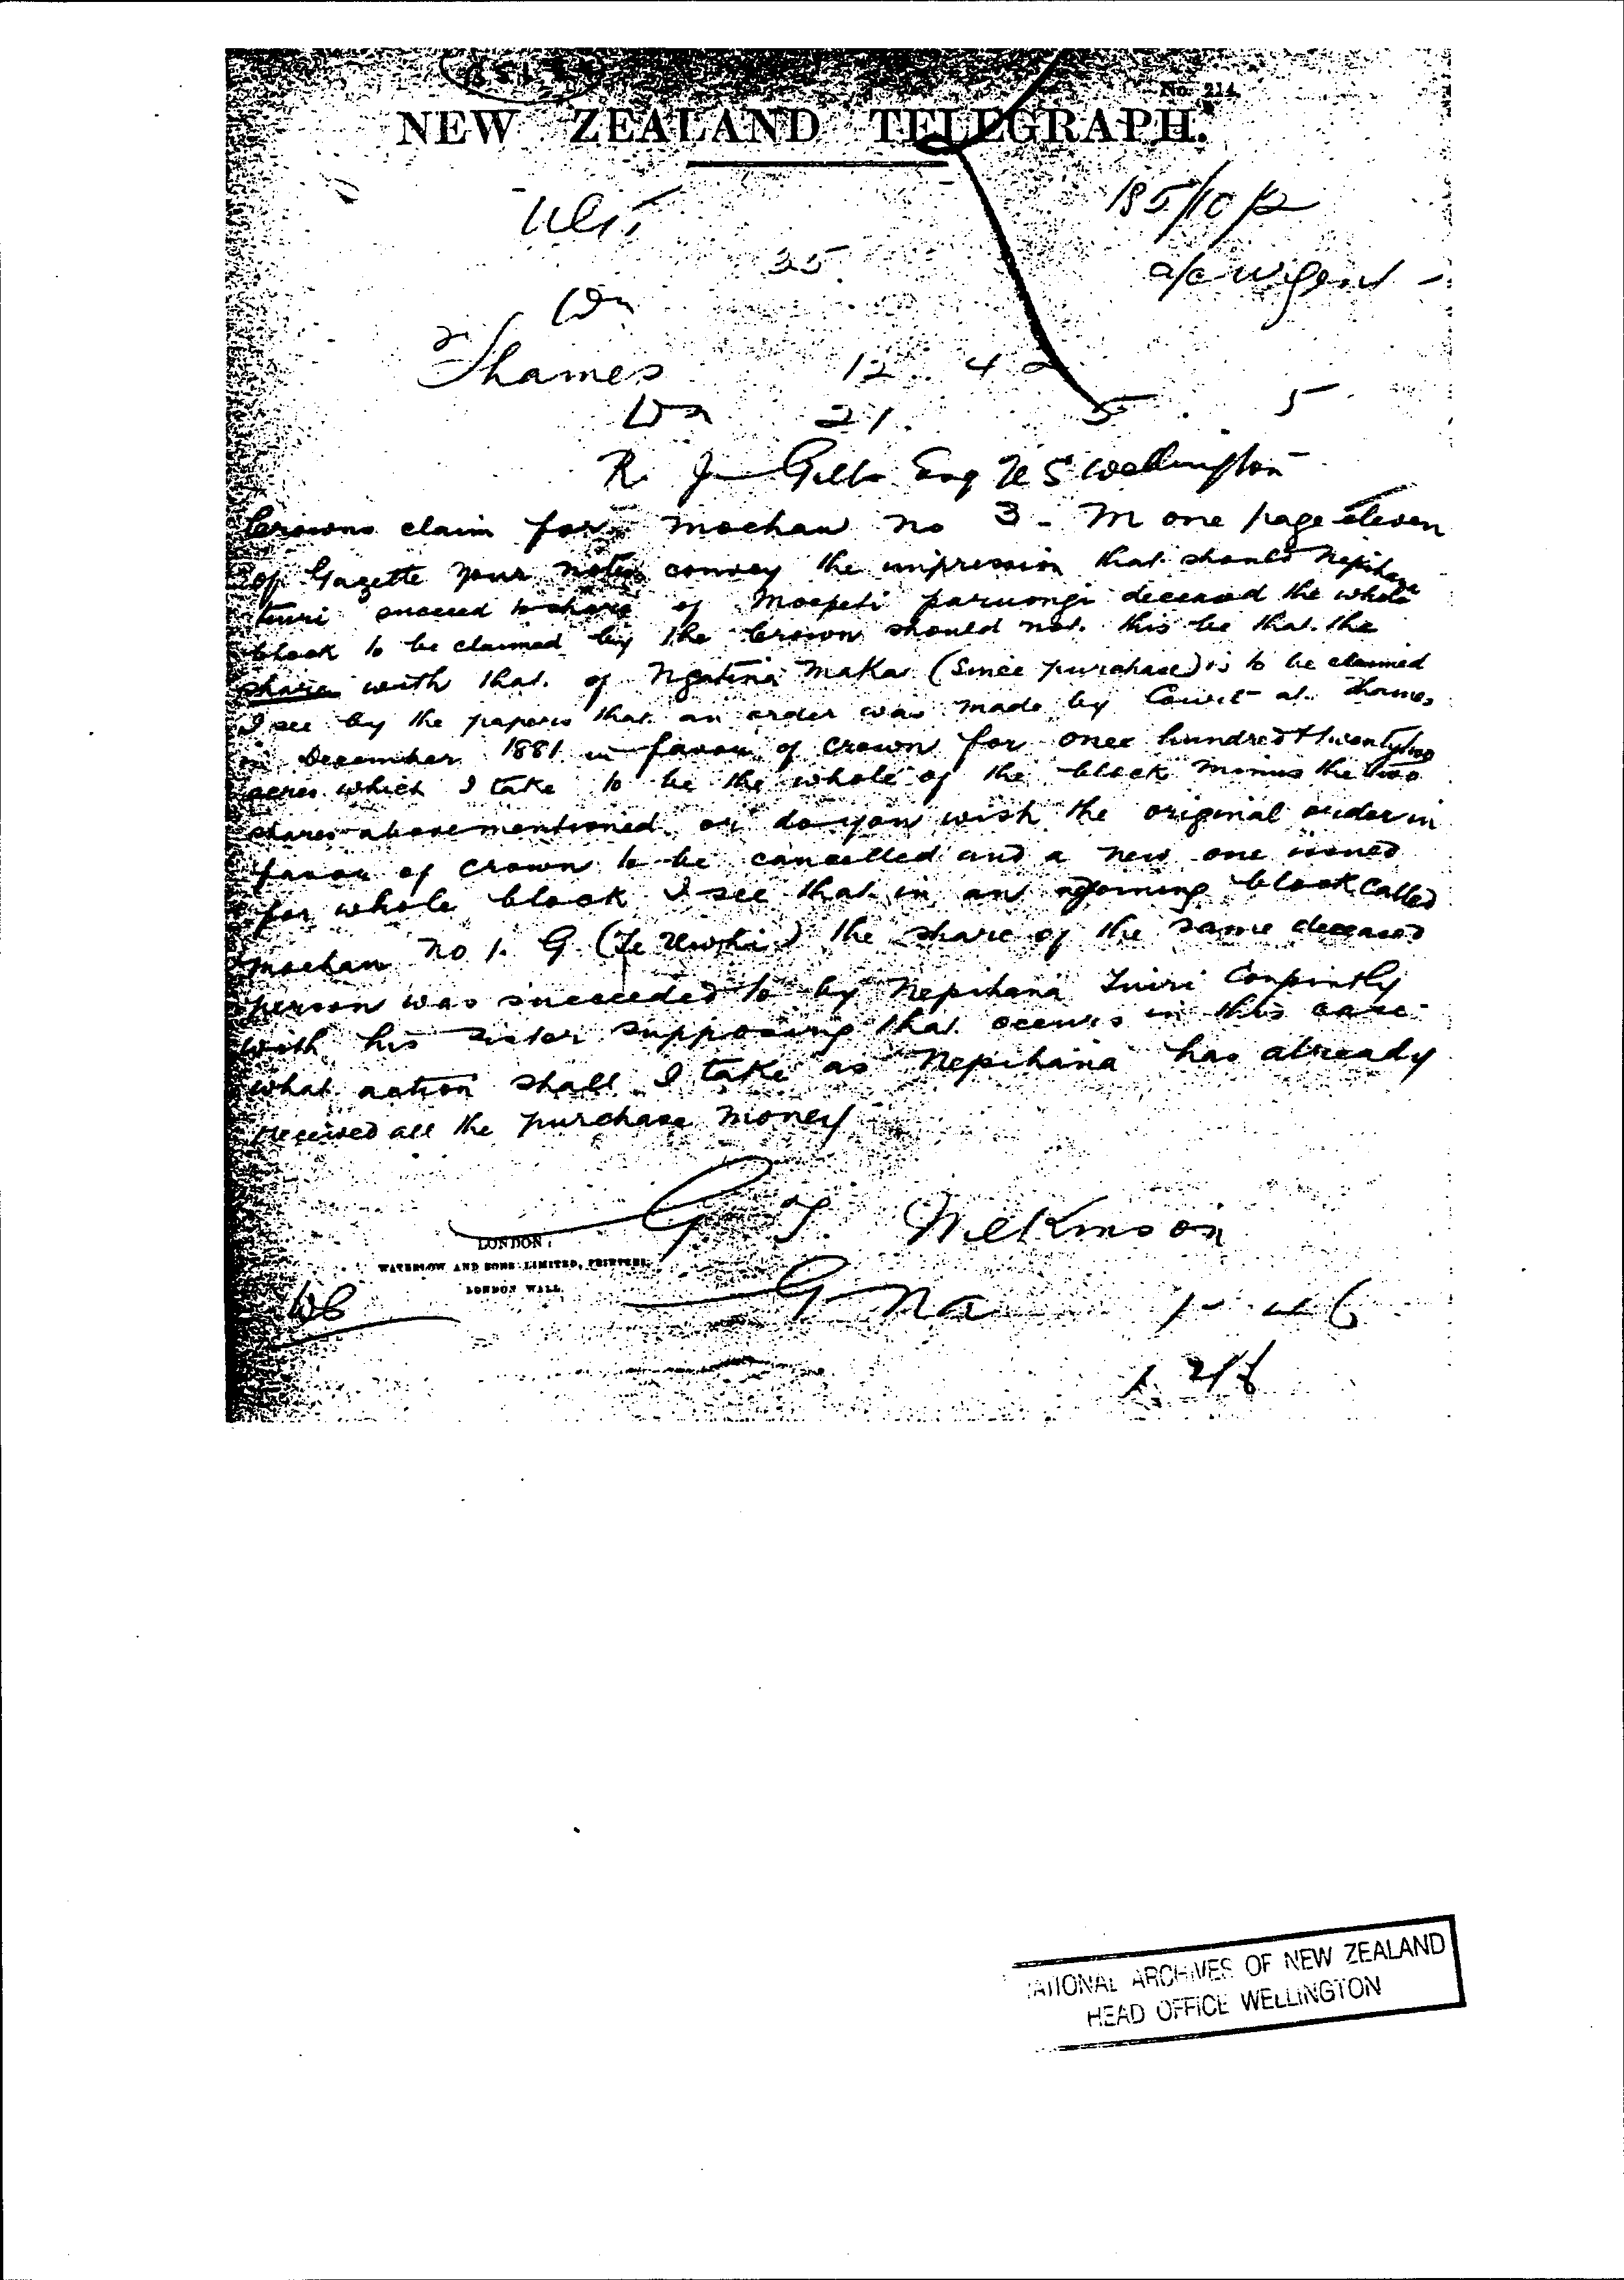 No. 214.
NEW ZEALAND TELEGRAPH.
185/10/2
35
Thames 12 42
21. 5. 5
R. J. Gill Esq U S Wellington
Crowns claim for Moehau No 3 - M one page eleven
of Gazette your notes convey the impression that should Nepihana
Tuiri succeed to share of paruongi deceased the whole
block to be claimed by the Crown should not this be that the
share with that of Ngatina Maka (Since purchased) is to be claimed
I see by the papers that an order was made by Court at Thames
in December 1881 in favour of Crown for one hundred & twenty two
acres which I take to be the whole of the block minus the two
shares abovementioned or do you wish the original order in
favor of Crown to be cancelled and a new one issued
for whole block I see that in an adjoining block called
Moehau No 1. G (Te ) the share of the same deceased
person was succeeded to by Nepihana Tuiri Conjointly
with his sister supposing that occurs in this case
what action shall I take as Nepihana has already
received all the purchase money
G T. Wilkinson
LONDON:
WATERLOW AND SONS LIMITED, PRINTERS,
LONDON WALL.
NATIONAL ARCHIVES OF NEW ZEALAND
HEAD OFFICE WELLINGTON